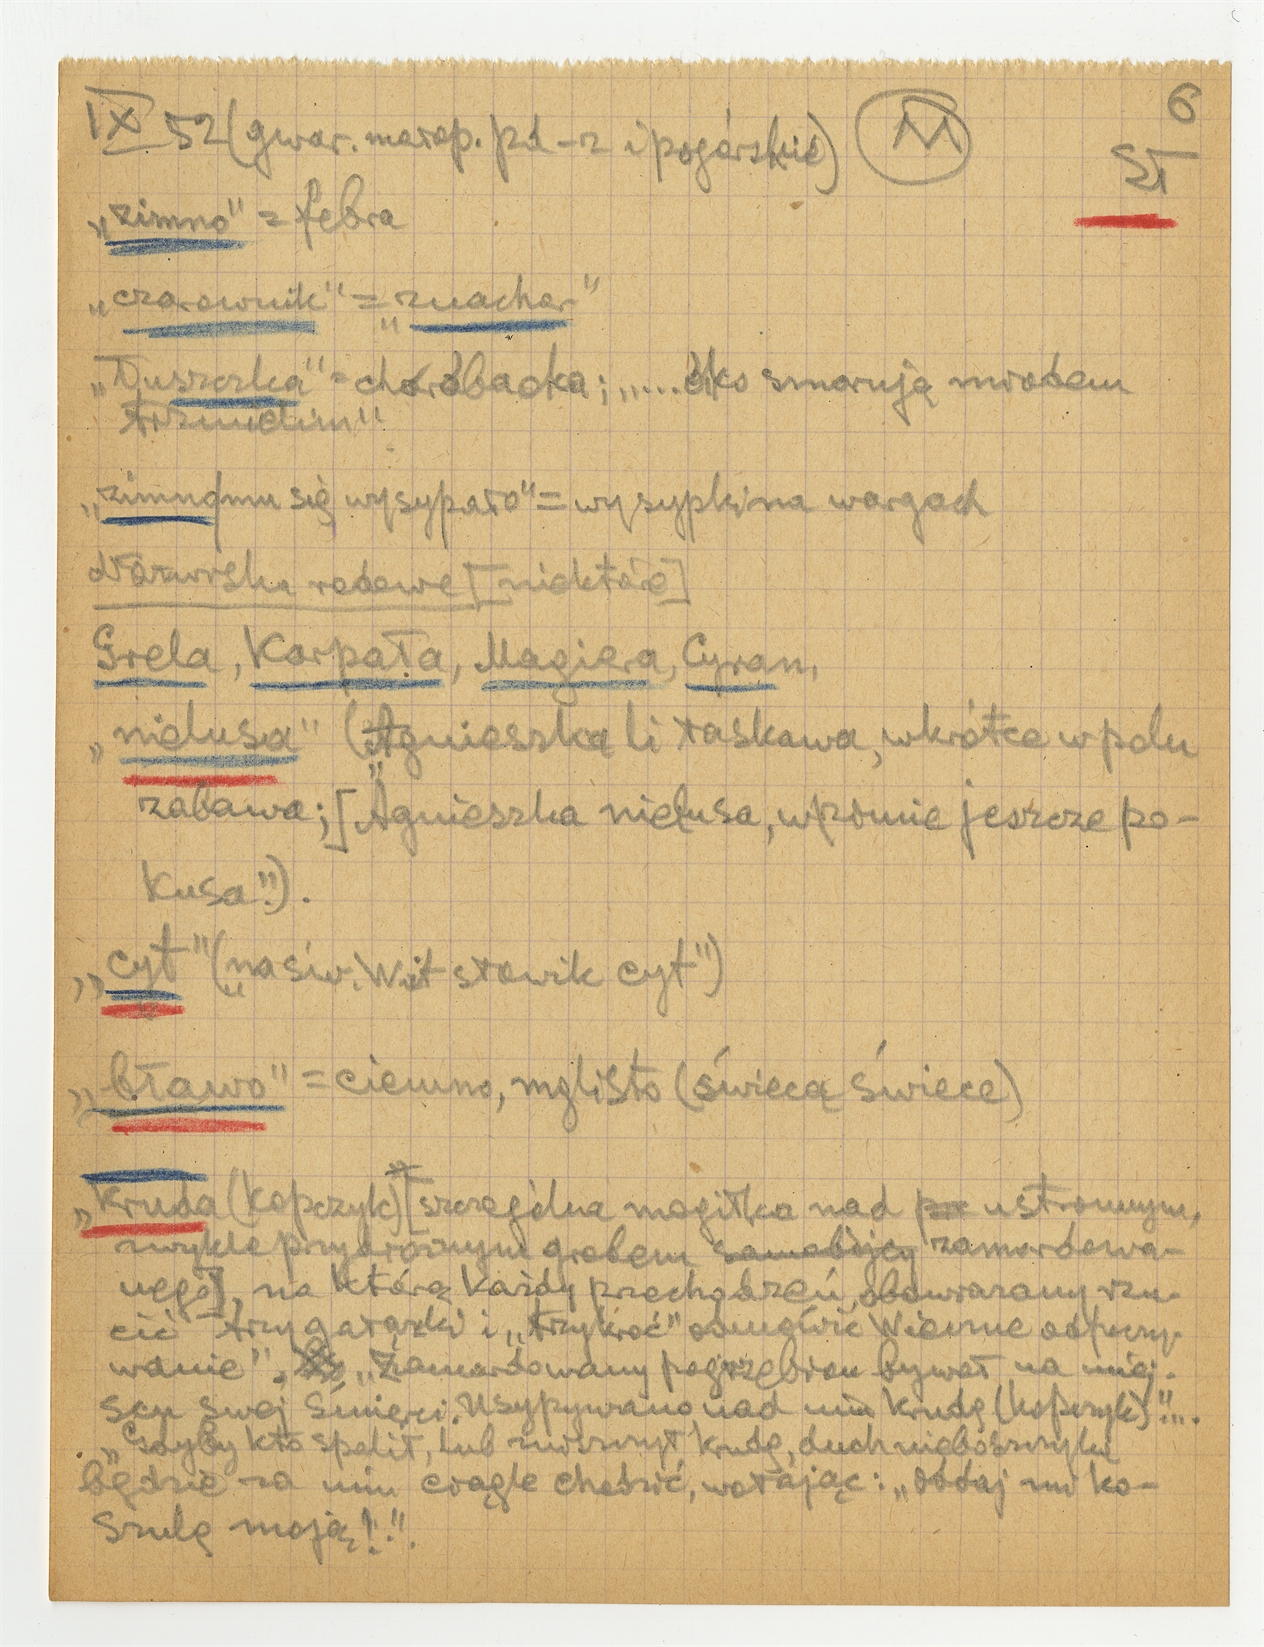 6
IX 52 (gwar. małop. pd-z i pogórskie) M
Sł
„zimno" = febra
„czarownik" = „znachor"
„Tłuszczka" = choróbacka; „.....oko smarują miodem
trzmielim"
„zimno mu się wysypało" = wysypki na wargach
Nazwiska rodowe [niektóre]
Grela, Karpała, Magiera, Cyran,
„nielusa" („Agnieszka li łaskawa, wkrótce w polu
zabawa; [Agnieszka nielusa, w zimie jeszcze po-
kusa").
„cyt" („na św. Wit słowik cyt")
„bławo" = ciemno, mglisto (świecą świece)
„Kruda (kopczyk) [szczególna mogiłka nad ustronnym,
zwykle przydrożnym grobem samobójcy zamordowa-
nego], na którą każdy przechodzeń, obowiązany rzu-
cić trzy gałązki i „trzykroć" odmówić Wieczne odpoczy-
wanie". „Zamordowany pogrzebion bywał na miej-
scu swej śmierci. Usypywano nad nim krudę (kopczyk)"....
„Gdyby kto spalił, lub zniszczył krudę, duch nieboszczyka
będzie za nim ciągle chodzić, wołając: „oddaj mi ko-
szulę moją!".